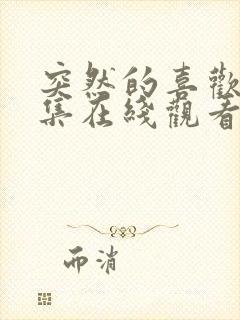 突然的喜歡
集在綫觀看
而消